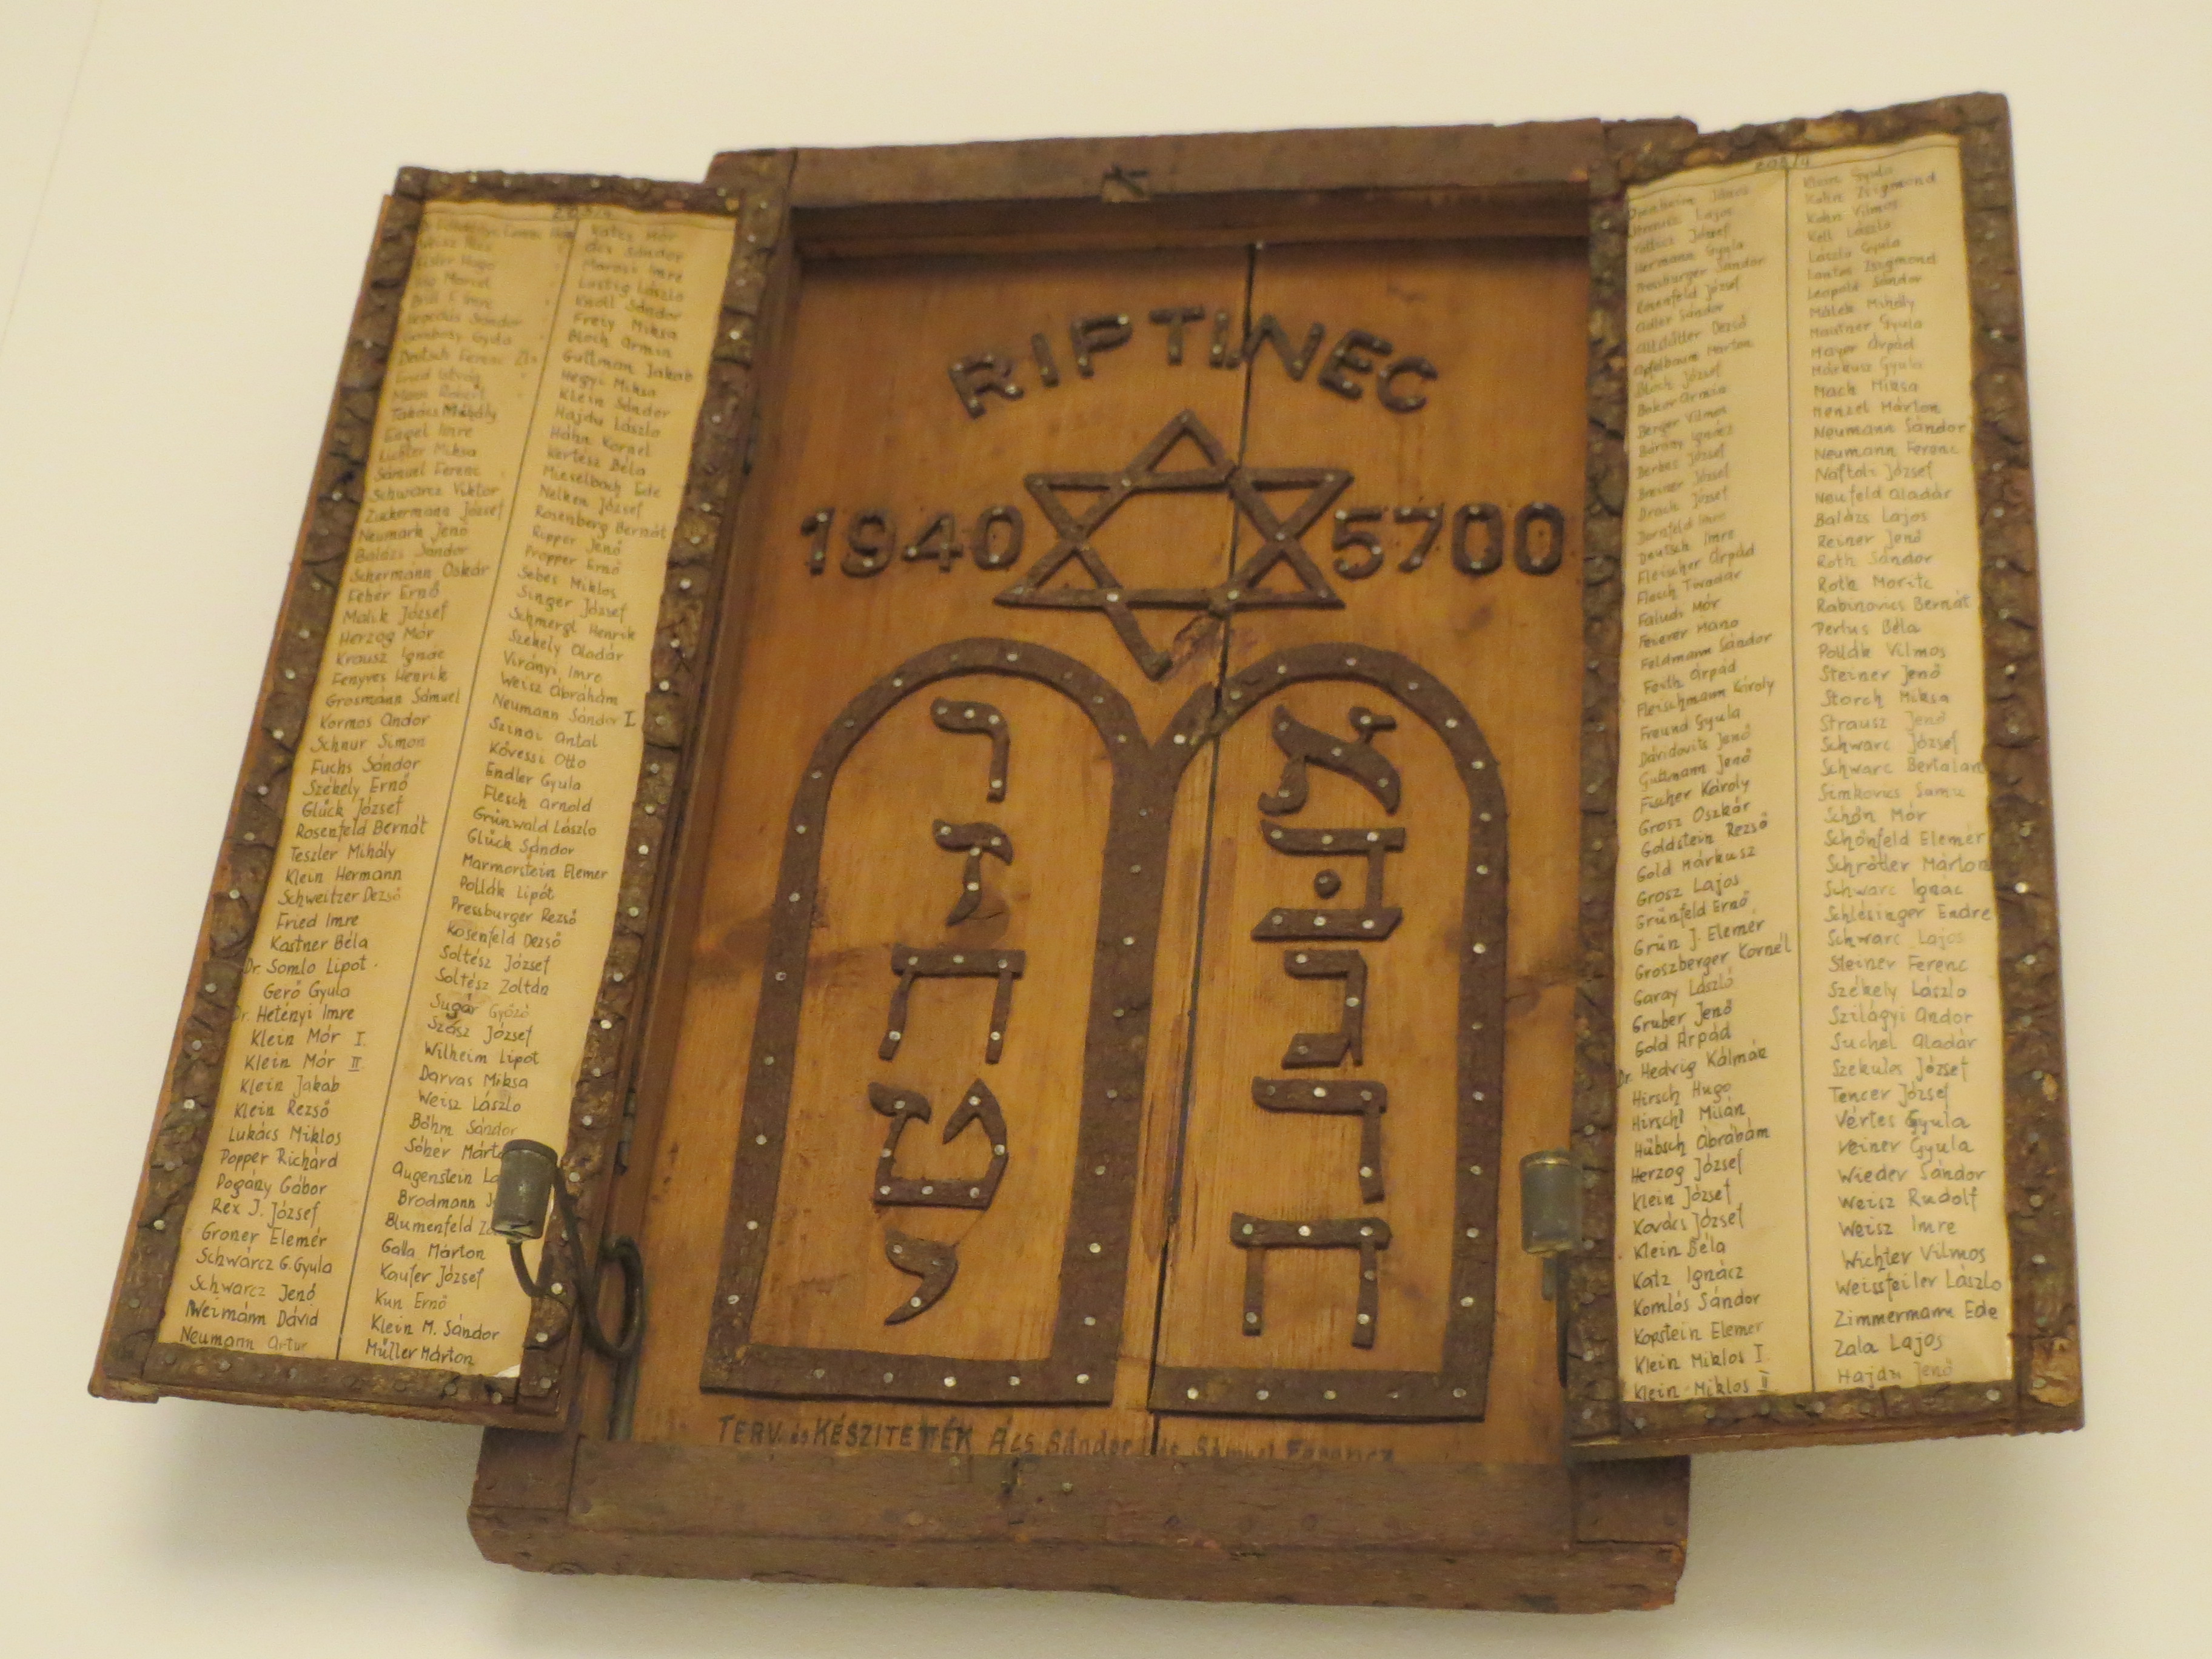 Takács Mihály
Engel Imre
Lichter Miksa
Sámuel Ferenc
Schwarcz Viktor
Zuckermann József
Neumark Jenő
Balázs Sándor
Schermann Oskár
Fehér Ernő
Malik József
Herzog Mór
Krausz Ignác
Fenyves Henrik
Grosmánn Sámuel
Kormos Andor
Schnur Simon
Fuchs Sándor
Székely Ernő
Glück József
Rosenfeld Bernát
Teszler Mihály
Klein Hermann
Schweitzer Dezső
Fried Imre
Kastner Béla
Dr. Somlo Lipot
Gerő Gyula
Dr. Hetényi Imre
Klein Mór I.
Klein Mór II.
Klein Jakab
Klein Rezső
Lukács Miklos
Popper Richárd
Pogány Gábor
Rex J. József
Groner Elemér
Schwárcz G. Gyula
Schwarcz Jenő
Weimánn Dávid
Neumann Artur
Ács Sándor
Marosi Imre
Lustig László
Knöll Sándor
Freiy Miksa
Bloch Armin
Guttman Jakab
Hegyi Miksa
Klein Sándor
Hajdu László
Hahn Kornel
Kertész Béla
Mieselbach Ede
Nelken József
Rosenberg Bernát
Ripper Jenő
Propper Ernő
Sebes Miklos
Singer József
Schmergl Henrik
Székely Aladár
Virányi Imre
Weisz Ábrahám
Neumann Sándor I.
Szinai Antal
Kövessi Otto
Endler Gyula
Flesch Arnold
Grünwald László
Glück Sándor
Marmorstein Elemer
Pollák Lipót
Pressburger Rezső
Rosenfeld Dezső
Soltész József
Soltész Zoltán
Sugár Győző
Szász József
Wilheim Lipót
Darvas Miksa
Weisz László
Böhm Sándor
Sóhér
Augenstein
Brodmann
Blumenfeld
Galla Márton
Kaufer József
Kun Ernő
Klein M. Sándor
Müller Márton
RIPTINEC
1940 5700
א ר
ב ז
ג ח
ד ט
ה י
TERV. és KÉSZITETTÉK Ács Sándor Sámuel Ferencz
Hermann Gyula
Pressburger Sándor
Rosenfeld József
Adler Sándor
Apfelbaum Márton
Bloch József
Berger Vilmos
Bárány Ignácz
Breiner József
Drach József
Dornfeld Imre
Deutsch Imre
Fleischer Árpád
Flesch Tivadar
Faludi Mór
Feuerer Manó
Feldmann Sándor
Feith Árpád
Fleischmann Károly
Freund Gyula
Dávidovits Jenő
Guttmann Jenő
Fischer Károly
Grosz Oszkár
Goldstein Rezső
Gold Márkusz
Grosz Lajos
Grünfeld Ernő
Grün J. Elemér
Groszberger Kornél
Garay László
Gruber Jenő
Gold Árpád
Dr. Hedvig Kálmán
Hirsch Hugo
Hirschl Milán
Hübsch Ábrahám
Herzog József
Klein József
Kovács József
Klein Béla
Katz Ignácz
Komlós Sándor
Kopstein Elemer
Klein Miklos I.
Klein Miklos II
Klein Gyula
Kahn Zsigmond
Kohn Vilmos
László Gyula
Lantos Zsigmond
Leopold Sándor
Málek Mihály
Mautner Gyula
Mayer Árpád
Márkusz Gyula
Mach Miksa
Menzel Márton
Neumann Sándor
Neumann Ferenc
Naftali József
Neufeld Aladár
Balázs Lajos
Reiner Jenő
Roth Sándor
Roth Moritz
Rabinovics Bernát
Perlus Béla
Pollák Vilmos
Steiner Jenő
Storch Miksa
Strausz Jenő
Schwarc József
Schwarc Bertalan
Simkovics Samu
Schőn Mór
Schőnfeld Elemér
Schrőtler Márton
Schwarc Ignác
Schlésinger Endre
Schwarc Lajos
Steiner Ferenc
Székely László
Szilágyi Andor
Suchel Aladár
Szekulas József
Tencer József
Vértes Gyula
Veiner Gyula
Wieder Sándor
Weisz Rudolf
Weisz Imre
Wichter Vilmos
Weissfeiler László
Zimmermann Ede
Zala Lajos
Hajdu Jenő